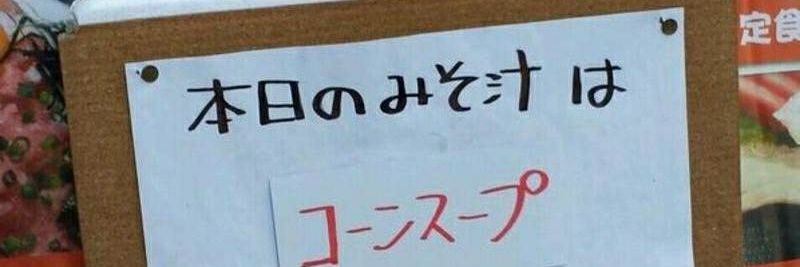 本日のみそ汁は
コーンスープ
定食